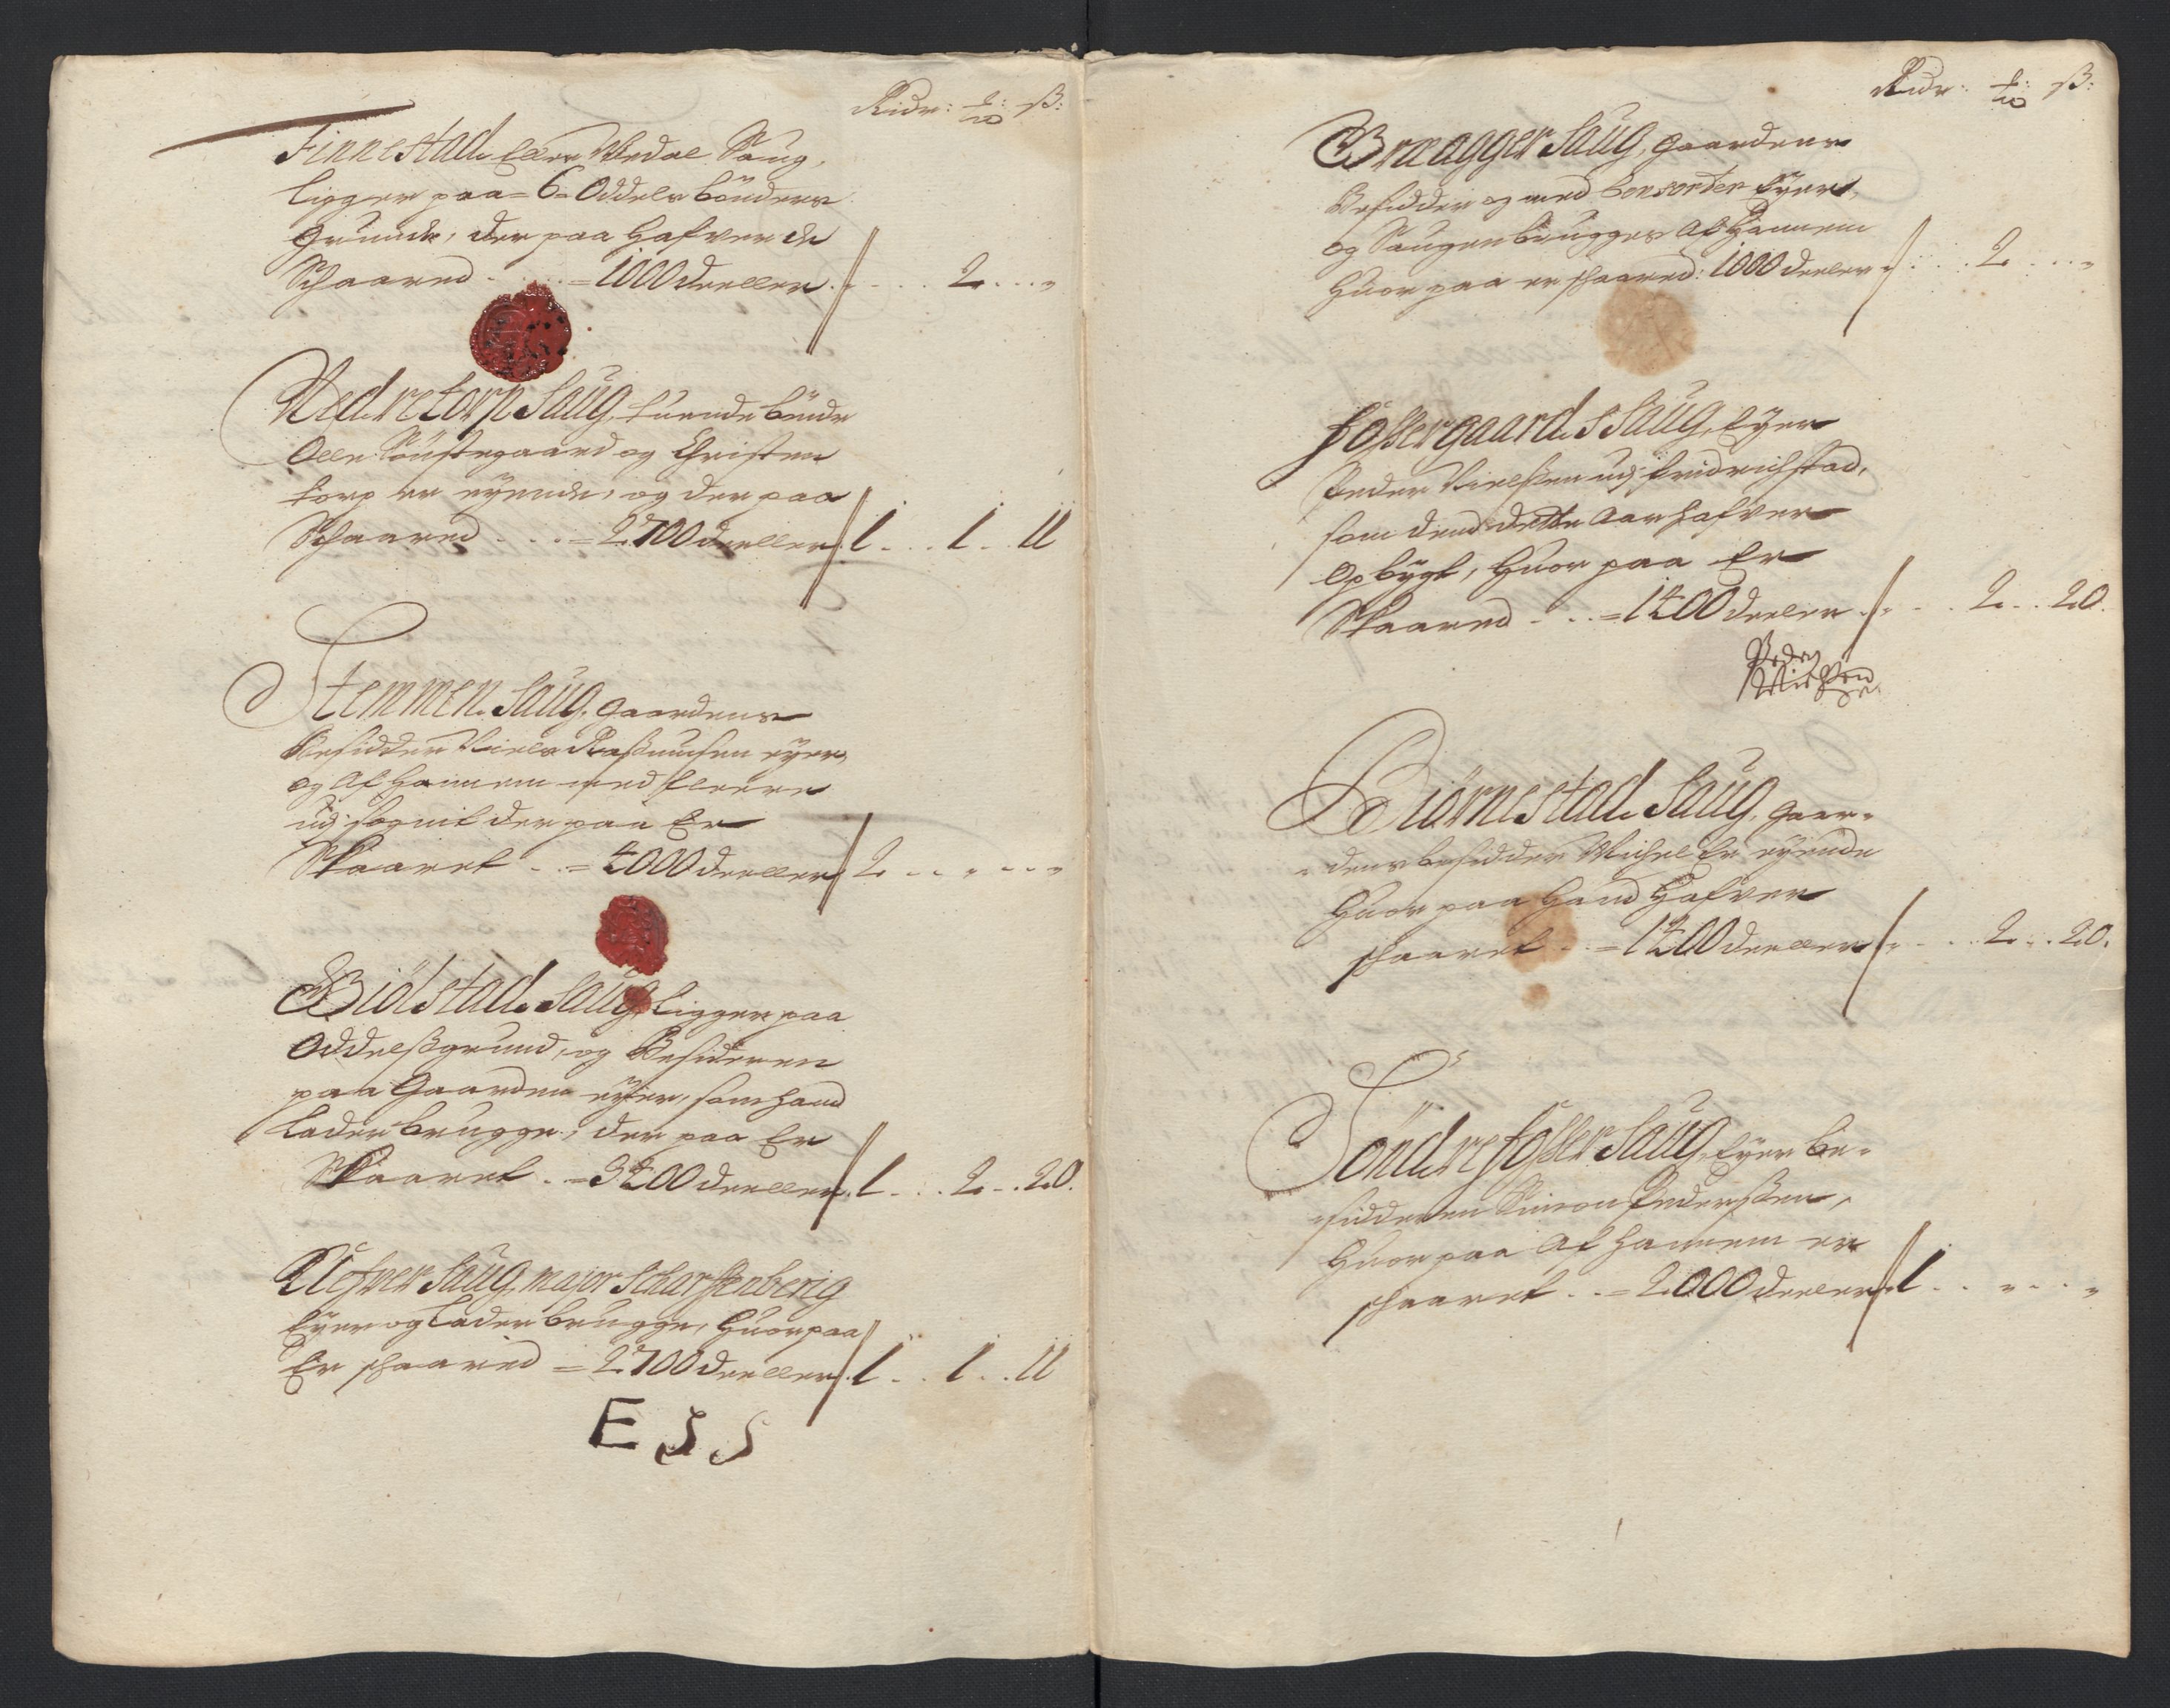 Ridr: ß:
Finnestad Eller Wedal Saug,
ligger paa = 6 = Oddels bönders
grunde, der paa hafver de
Schaared = 1000 deeller 2
Nedretorp Saug, tuende bönder
Olle Söustegaard og Christen
torp er eyende, og der paa
Schaared = 2700 deeller 1 1 11
Stemmen Saug, gaardens
Besidder Niels Rasmusen eyer,
og af hannem med fleere
udj Sognit der paa Er
Skaaret = 4000 deeller 2
Biölstad Saug, ligger paa
Oddelsgrund, og Besideren
paa Gaarden eyer, som hand
lader brugge, der paa Er
Skaaret = 3400 deeller 1 2 20.
Refner Saug, major Scharffenberig
Eyer og lader brugge, huor paa
Er schaared = 2700 deeller 1 1 11
E S S
Ridr: ß:
Bræagger Saug, gaardens
Besidder og med Consorter Eyer,
og Saugen brugges af hannem
huor paa er schaared: 1000 deeler 2
Fossergaard Saug, Eyer
Peder Nielsen udj Fridrichstad,
som dend dette Aar hafver
Opbygt, huor paa Er
Skaared = 1400 deeler 2 20.
Peder
Nielsen
Biörnestad Saug, gaar=
=dens besidder Michel Er eyende
huor paa hand hafver
schaaret = 1400 deeller 2 20.
Söndre fosser Saug, Eyer be=
=sidderen Simon Pedersen,
huor paa af hannem er
schaaret = 2000 deeller 1